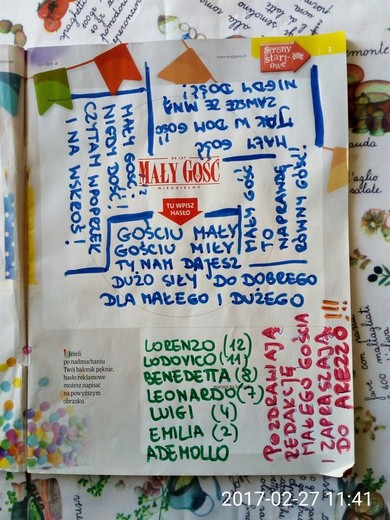 www.malygosc.pl
Strony
Start-
owe
3
MAŁY GOŚĆ
NIGDY DOŚĆ!
ZAWSZE ZE MNĄ
JAK W DOM GOŚĆ!!
MAŁY GOŚĆ!
NIGDY DOŚĆ!
CZYTAM W POPRZEK
I NA WSKROŚ!
MAŁY GOŚĆ
TO
NAPRAWDĘ
RÓWNY GOŚĆ!
90 LAT
MAŁY GOŚĆ
NIEDZIELNY
TU WPISZ
HASŁO
GOŚCIU MAŁY
GOŚCIU MIŁY
TY NAM DAJESZ
DUŻO SIŁY DO DOBREGO
DLA MAŁEGO I DUŻEGO
Jeżeli
po nadmuchaniu
Twój balonik pęknie,
hasło reklamowe
możesz napisać
na powyższym
obrazku.
LORENZO (12)
LODOVICO (11)
BENEDETTA (8)
LEONARDO (7)
LUIGI (4)
EMILIA (2)
ADEMOLLO
POZDRAWIAJĄ
REDAKCJĘ
MAŁEGO GOŚCIA
I ZAPRASZAJĄ
DO AREZZO!!!
2017-02-27 11:41